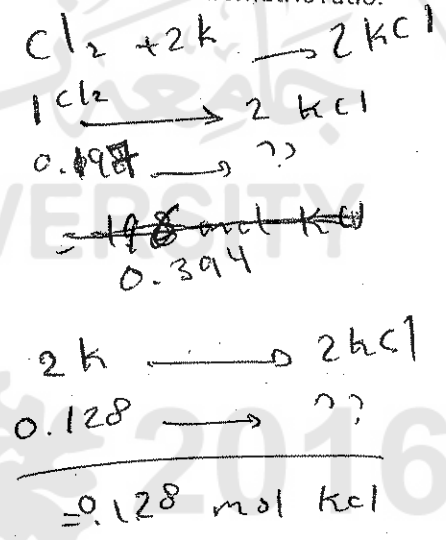 Cl₂ + 2k → 2 KCl
1 Cl₂ → 2 kCl
0.197 → ??
=
0.394
2 k → 2 kCl
0.128 → ??
=0.128 mol kcl
جامعة
VERSITY
2016